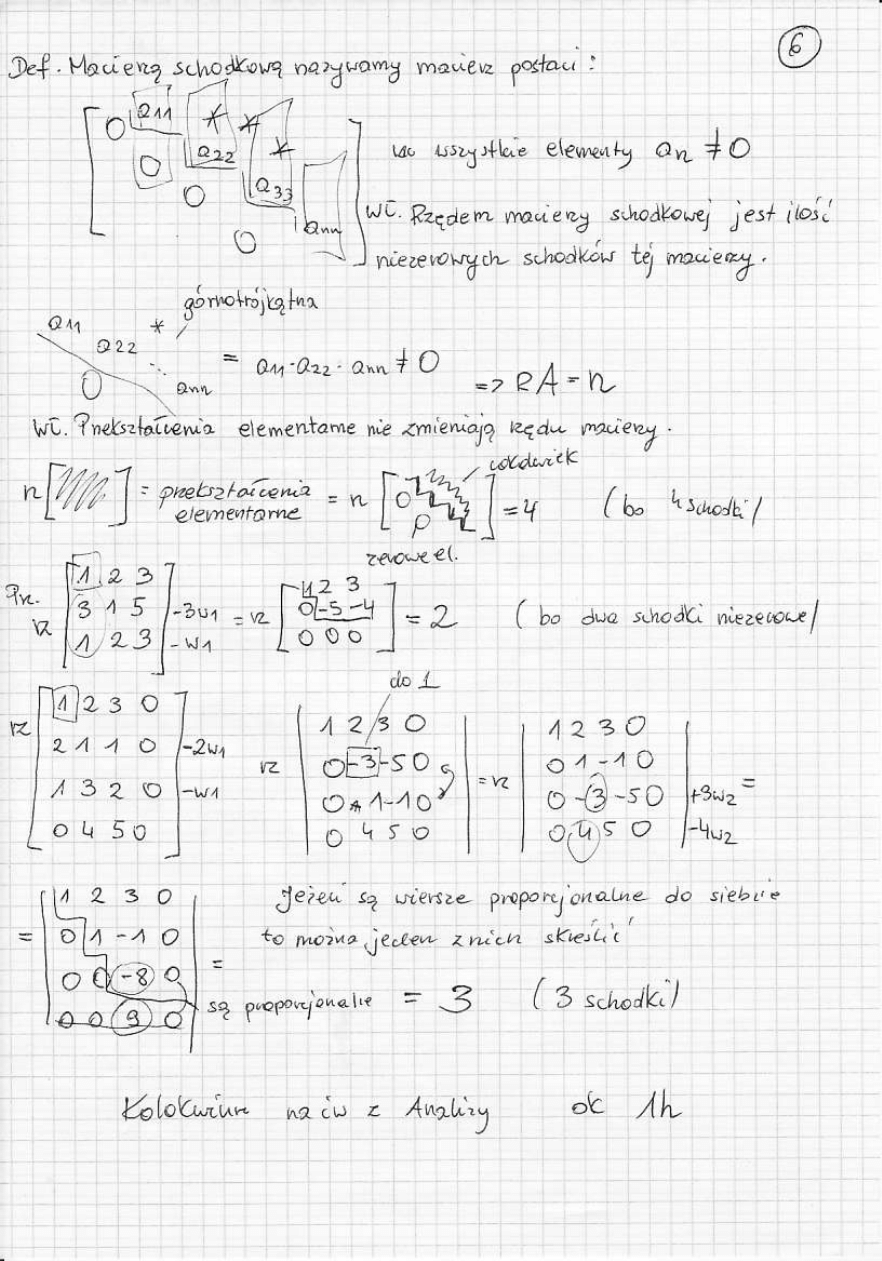 6
Def. Macierzą schodkową nazywamy macierz postaci:
[ 0 a11 * *
0 a22 *
0 a33
0 ann ]
wszystkie elementy an ≠ 0
Wł. Rzędem macierzy schodkowej jest ilość
niezerowych schodków tej macierzy.
górnotrójkątna
a11 *
a22
0 ann
= a11·a22·ann ≠ 0 => RA = n
Wł. Przekształcenia elementarne nie zmieniają rzędu macierzy.
cokolwiek
= przekształcenia elementarne = [ 0 0 ] = 4 (bo 4 schodki)
zerowe el.
Prz.
rz [ 1 2 3
3 1 5 -3w1
1 2 3 ] -w1
= rz [ 1 2 3
0 -5 -4
0 0 0 ] = 2 (bo dwa schodki niezerowe)
do 1
rz [ 1 2 3 0
2 1 1 0 -2w1
1 3 2 0 -w1
0 4 5 0 ]
rz | 1 2 3 0
0 -3 -5 0
0 1 -1 0
0 4 5 0 |
= rz | 1 2 3 0
0 1 -1 0
0 -3 -5 0 +3w2
0 4 5 0 | -4w2 =
= | 1 2 3 0
0 1 -1 0
0 0 -8 0
0 0 9 0 | =
Jeżeli są wiersze proporcjonalne do siebie
to można jeden z nich skreślić
są proporcjonalne = 3 (3 schodki)
Kolokwium na ćw z Analizy ok 1h